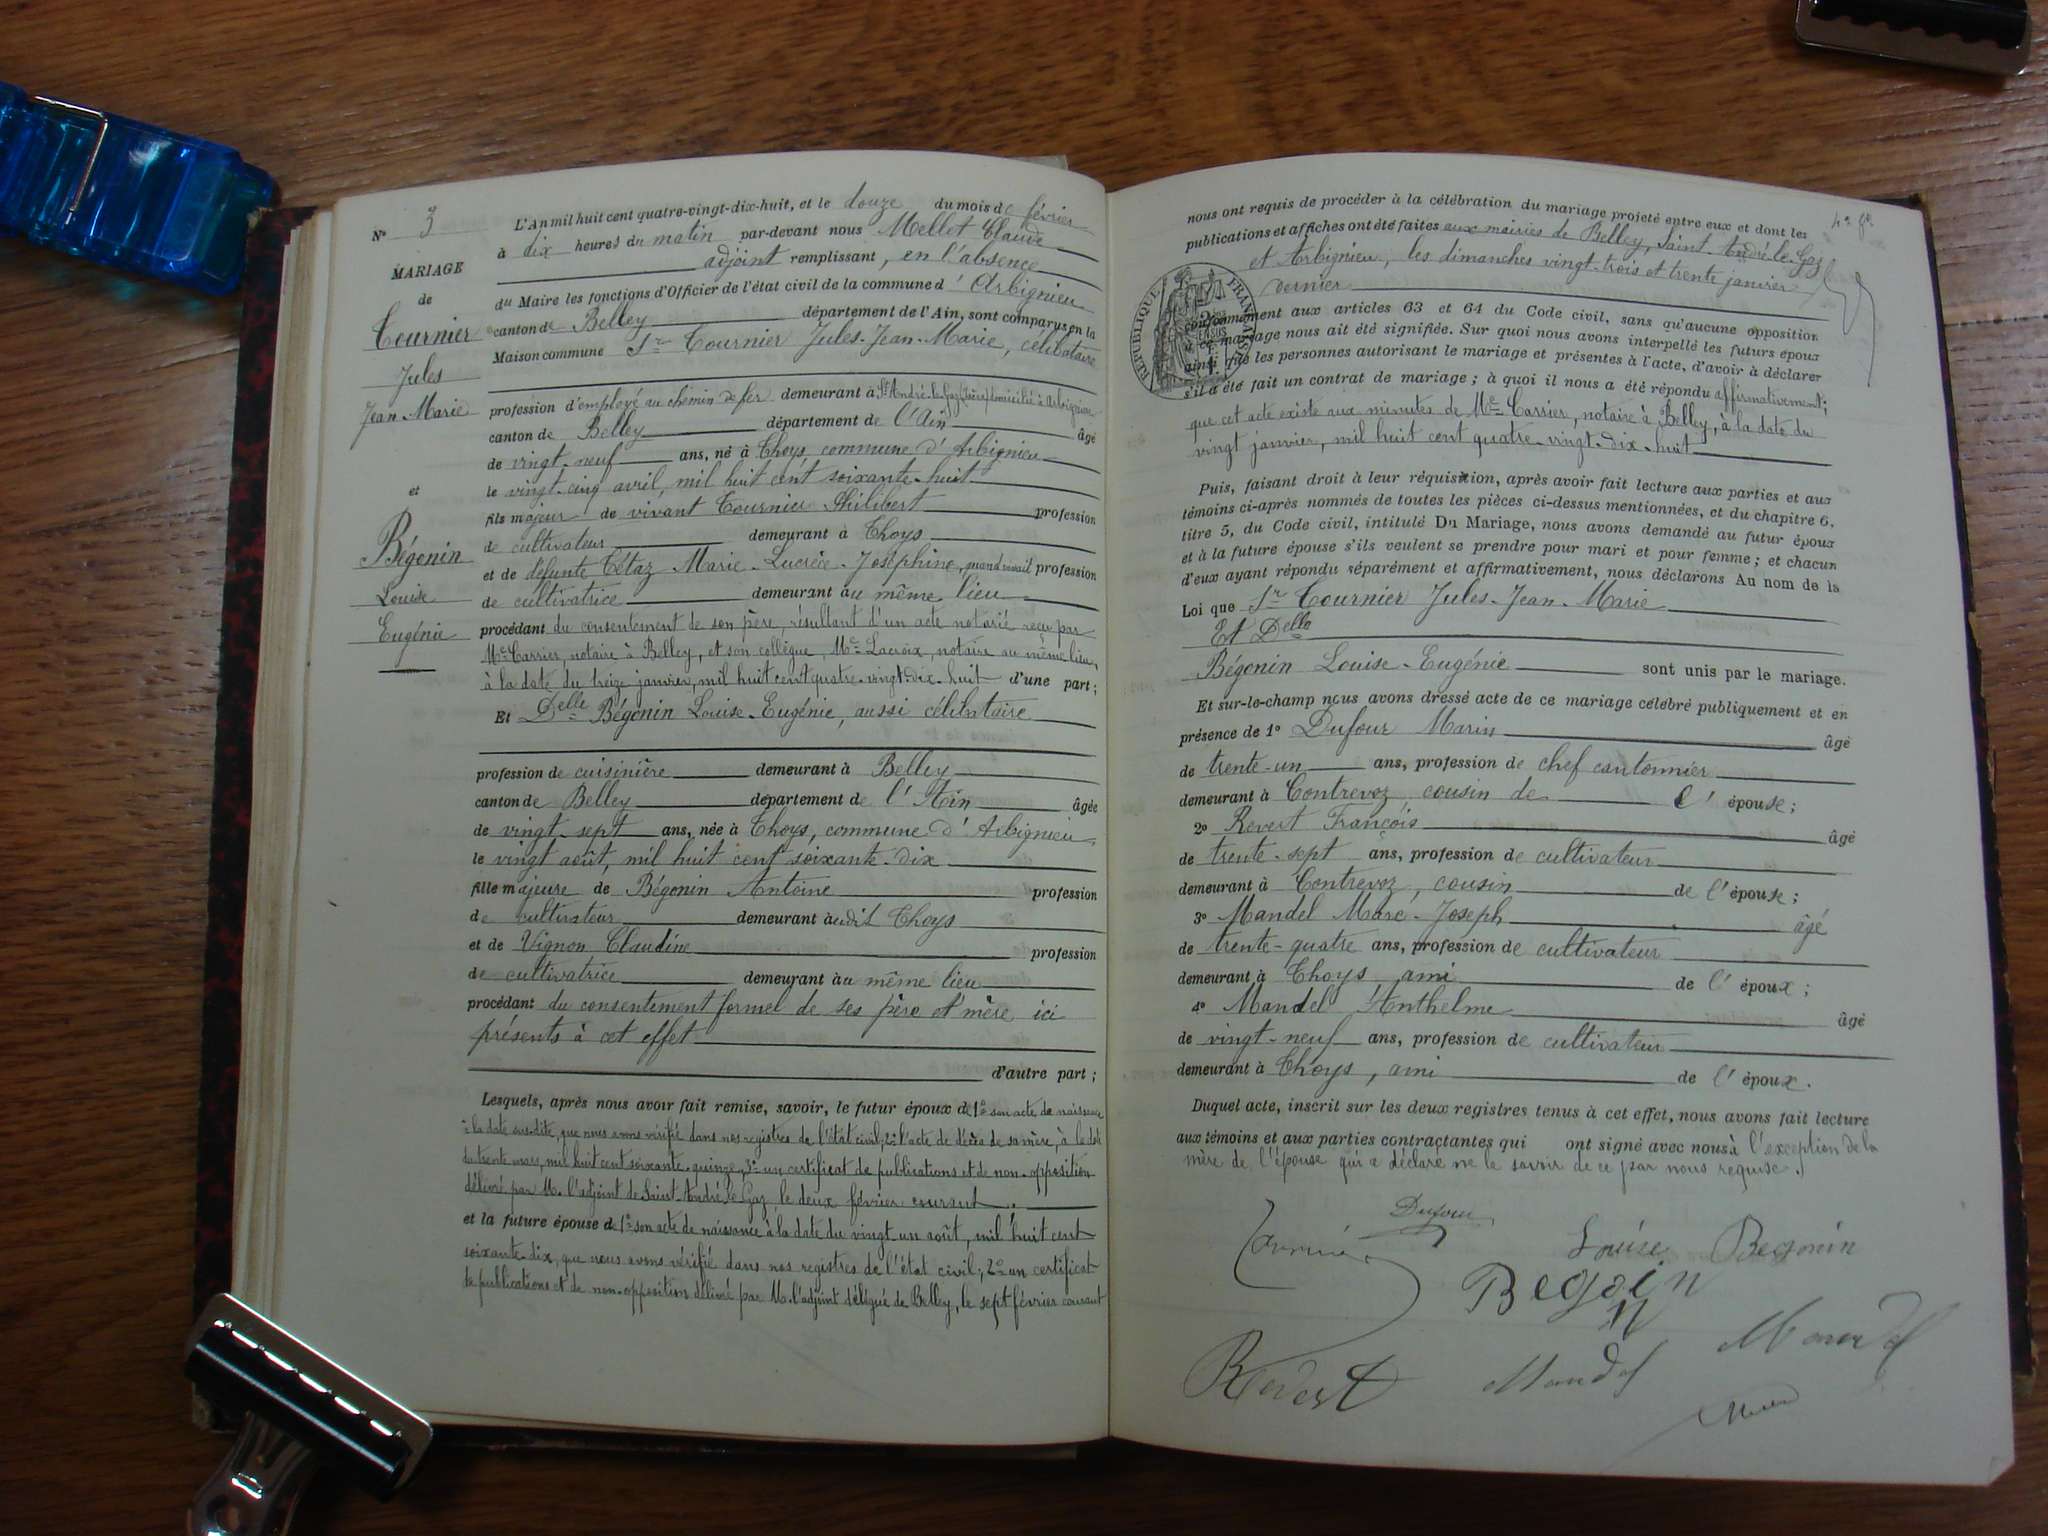 N° 3
MARIAGE
de
Tournier
Jules
Jean-Marie
et
Bégonin
Louise
Eugénie
L'An mil huit cent quatre-vingt-dix-huit, et le douze du mois de février
à dix heures du matin par-devant nous Mellet Claude
adjoint remplissant, en l'absence
du Maire les fonctions d'Officier de l'état civil de la commune d'Arbignieu
canton de Belley département de l'Ain, sont comparus en la
Maison commune Sr Tournier Jules-Jean-Marie, célibataire
profession d'employé au chemin de fer demeurant à St André-le-Gaz (Isère) domicilié à Arbignieu
canton de Belley département de l'Ain âgé
de vingt-neuf ans, né à Thoys, commune d'Arbignieu
le vingt-cinq avril, mil huit cent soixante-huit
fils majeur de vivant Tournier Philibert profession
de cultivateur demeurant à Thoys
et de défunte Tétaz Marie-Lucrèce-Joséphine, quand vivait profession
de cultivatrice demeurant au même lieu
procédant du consentement de son père, résultant d'un acte notarié reçu par
Me Carrier, notaire à Belley, et son collègue, Me Lacroix, notaire au même lieu,
à la date du treize janvier, mil huit cent quatre-vingt-dix-huit d'une part;
Et Delle Bégonin Louise-Eugénie, aussi célibataire
profession de cuisinière demeurant à Belley
canton de Belley département de l'Ain âgée
de vingt-sept ans, née à Thoys, commune d'Arbignieu,
le vingt août, mil huit cent soixante-dix
fille majeure de Bégonin Antoine profession
de cultivateur demeurant audit Thoys
et de Vignon Claudine profession
de cultivatrice demeurant au même lieu
procédant du consentement formel de ses père et mère ici
présents à cet effet
d'autre part;
Lesquels, après nous avoir fait remise, savoir, le futur époux de 1° son acte de naissance
à la date susdite, que nous avons vérifié dans nos registres de l'état civil; 2° l'acte de décès de sa mère, à la date
du trente mars, mil huit cent soixante-quinze, 3° un certificat de publications et de non-opposition
délivré par M. l'adjoint de Saint-André-le-Gaz, le deux février courant
et la future épouse de 1° son acte de naissance à la date du vingt un août, mil huit cent
soixante-dix, que nous avons vérifié dans nos registres de l'état civil; 2° un certificat
de publications et de non-opposition délivré par M. l'adjoint délégué de Belley, le sept février courant
nous ont requis de procéder à la célébration du mariage projeté entre eux et dont les
publications et affiches ont été faites aux mairies de Belley, Saint-André-le-Gaz
et Arbignieu, les dimanches vingt-trois et trente janvier
dernier
RÉPUBLIQUE FRANÇAISE
conformément aux articles 63 et 64 du Code civil, sans qu'aucune opposition
à ce mariage nous ait été signifiée. Sur quoi nous avons interpellé les futurs époux
ainsi que les personnes autorisant le mariage et présentes à l'acte, d'avoir à déclarer
s'il a été fait un contrat de mariage; à quoi il nous a été répondu affirmativement;
que cet acte existe aux minutes de Me Carrier, notaire à Belley, à la date du
vingt janvier, mil huit cent quatre-vingt-dix-huit
Puis, faisant droit à leur réquisition, après avoir fait lecture aux parties et aux
témoins ci-après nommés de toutes les pièces ci-dessus mentionnées, et du chapitre 6,
titre 5, du Code civil, intitulé Du Mariage, nous avons demandé au futur époux
et à la future épouse s'ils veulent se prendre pour mari et pour femme; et chacun
d'eux ayant répondu séparément et affirmativement, nous déclarons Au nom de la
Loi que Sr Tournier Jules-Jean-Marie
Et Delle
Bégonin Louise-Eugénie sont unis par le mariage.
Et sur-le-champ nous avons dressé acte de ce mariage célébré publiquement et en
présence de 1° Dufour Marin âgé
de trente-un ans, profession de chef cantonnier
demeurant à Contrevoz, cousin de l'épouse;
2° Revert François âgé
de trente-sept ans, profession de cultivateur
demeurant à Contrevoz, cousin de l'épouse;
3° Mandel Marc-Joseph âgé
de trente-quatre ans, profession de cultivateur
demeurant à Thoys, ami de l'époux;
4° Mandel Anthelme âgé
de vingt-neuf ans, profession de cultivateur
demeurant à Thoys, ami de l'époux.
Duquel acte, inscrit sur les deux registres tenus à cet effet, nous avons fait lecture
aux témoins et aux parties contractantes qui ont signé avec nous à l'exception de la
mère de l'épouse qui a déclaré ne le savoir de ce par nous requise.
Dufour
Tournier
Louise Begonin
Begoin
N
Revert Mandel Mandel